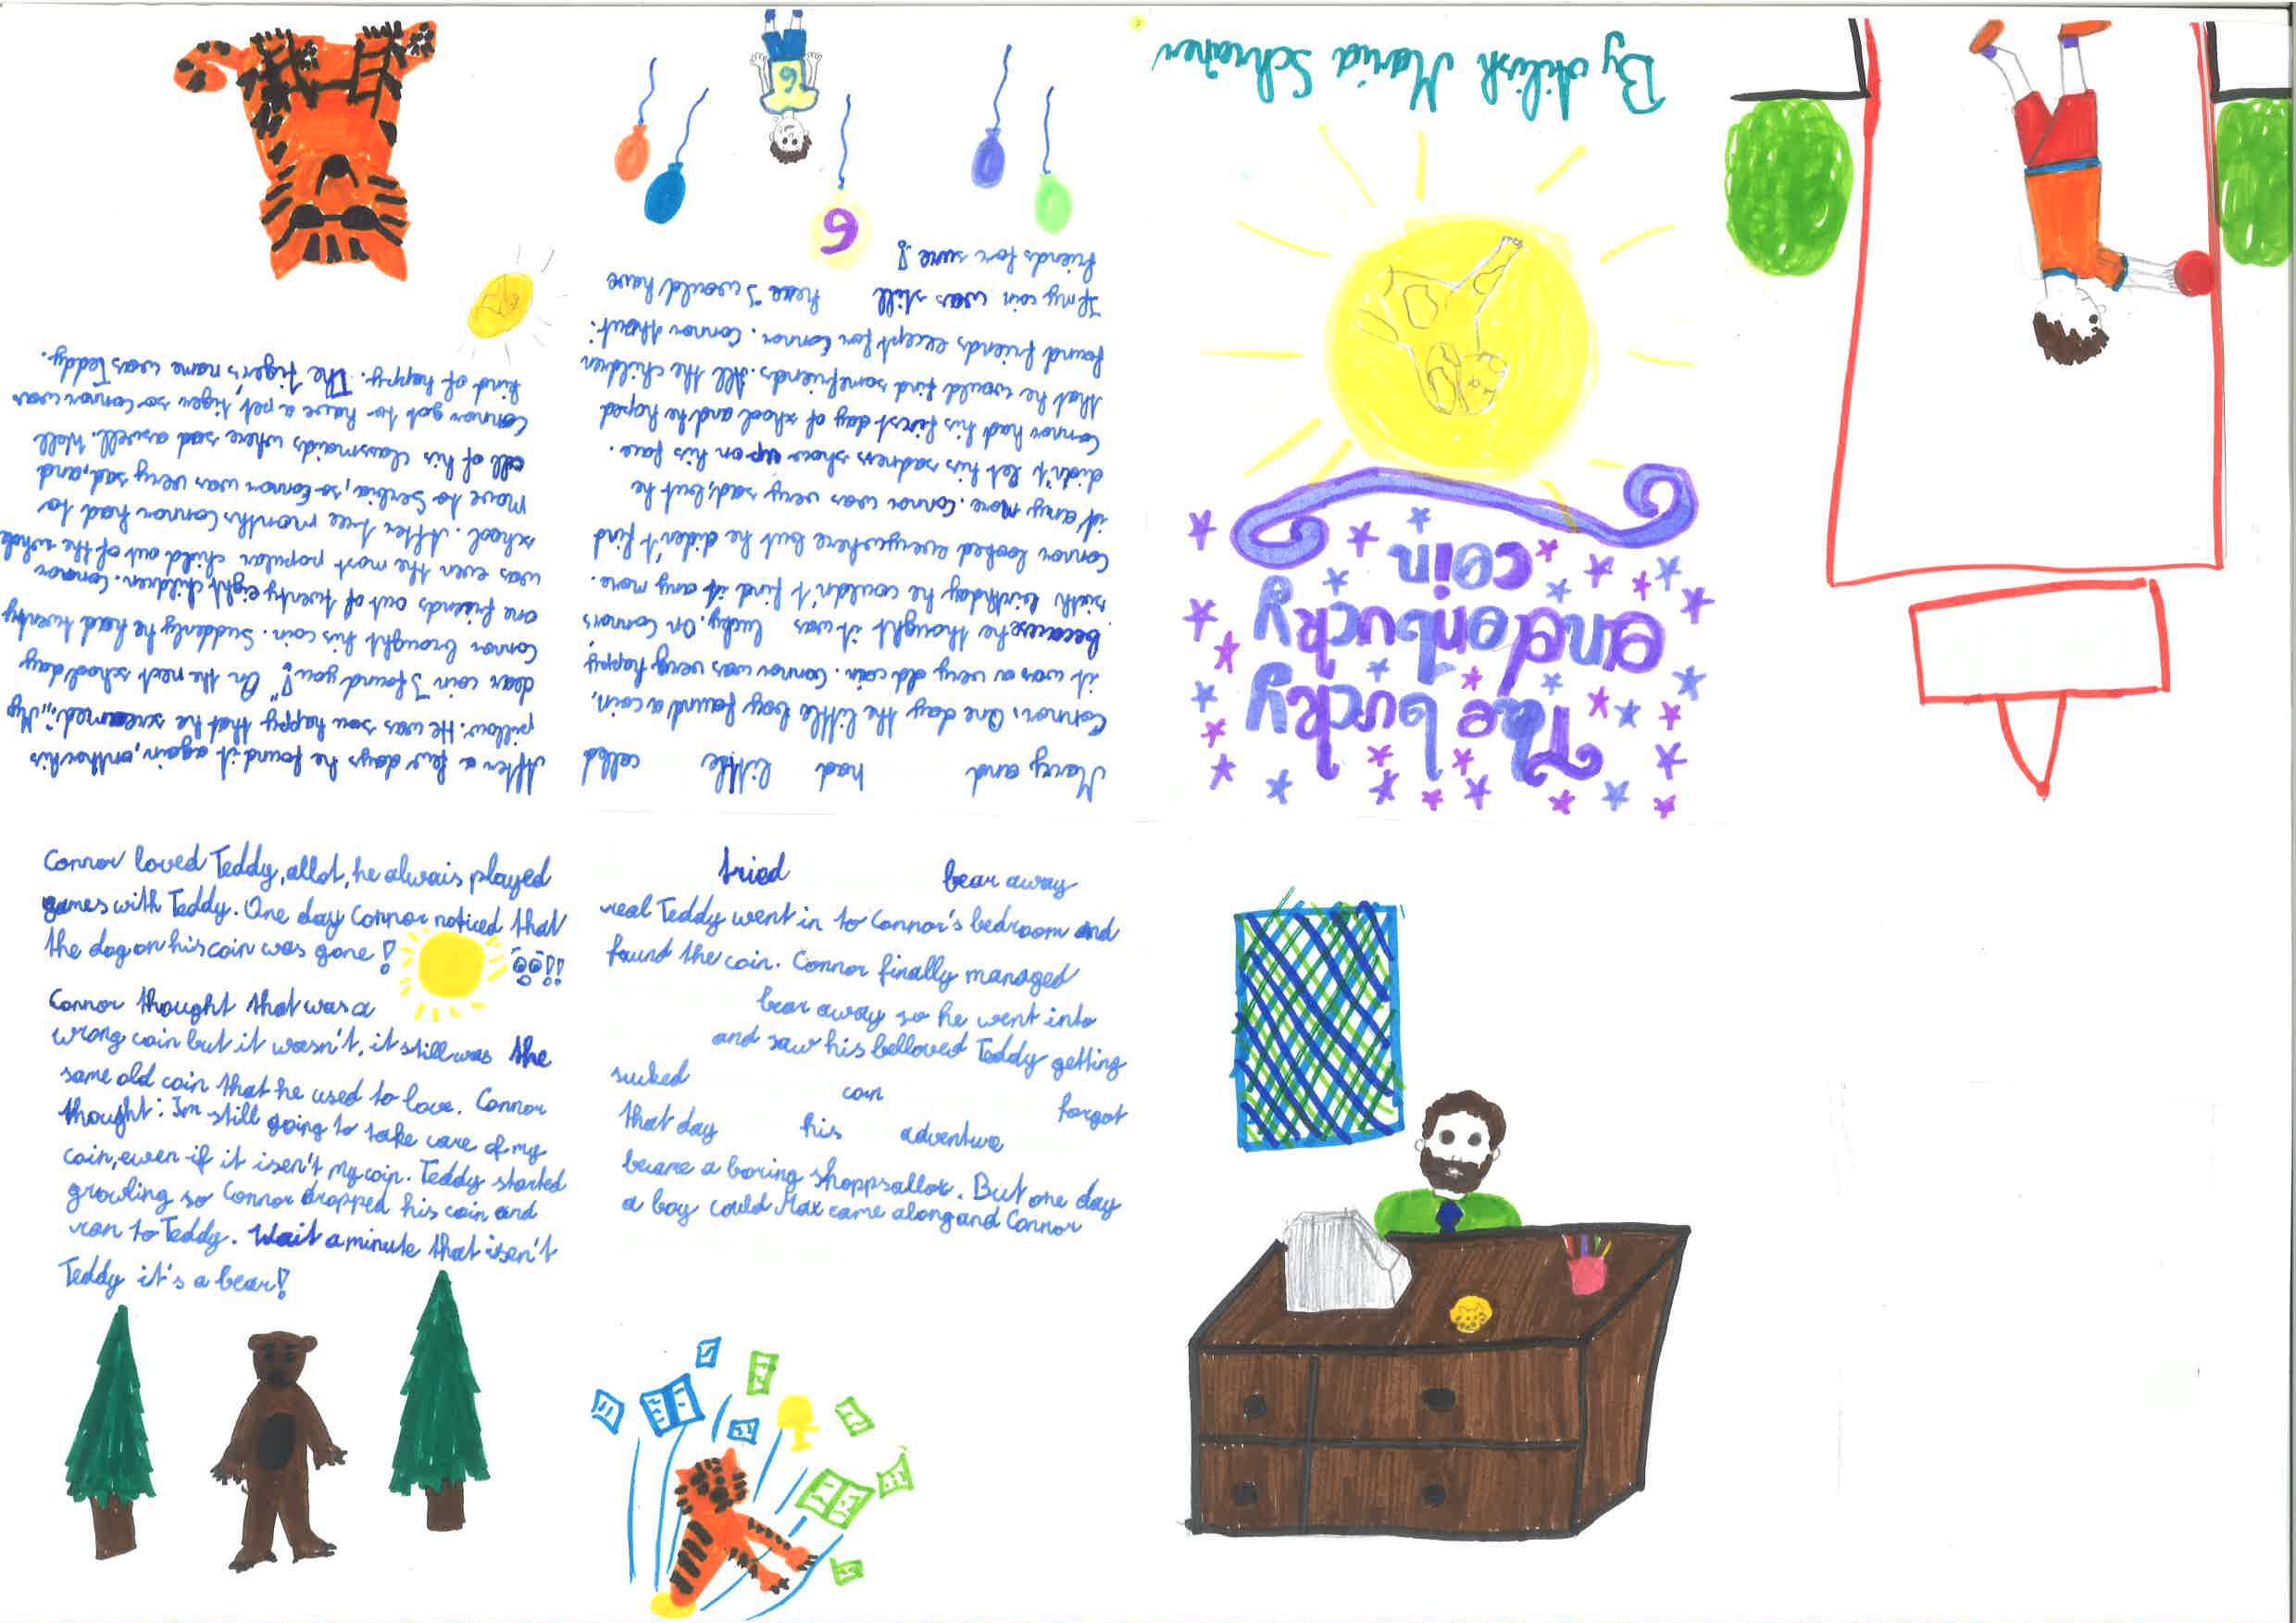 The lucky
andonlucky
coin
By Ailish Maria
Mary and had little called
Connor. One day the little boy found a coin,
it was a very old coin. Connor was very happy
because he thought it was lucky. On Connors
sixth birthday he couldn't find it any more.
Connor looked everywhere but he diden't find
it any more. Connor was very sad, but he
didn't let his sadness show up on his face.
Connor had his first day of school and he hoped
that he would find somefriends. All the children
found friends except for Connor. Connor thout:
If my coin was still here I would have
friends for sure!
6
6
After a few days he found it again, onthor his
pillow. He was sou happy that he screamed: "My
dear coin I found you!" On the next schoolday
Connor brought his coin. Suddenly he had twenty
one friends out of twenty eight children. Connor
was even the most popular child out of the whole
school. After tree months Connor had to
move to Serbia, so Connor was very sad, and
all of his classmaids where sad aswell. Well
Connor got to have a pet tiger so Connor was
kind of happy. The tiger's name was Teddy.
Connor loved Teddy, allot, he alwais played
games with Teddy. One day Connor noticed that
the dog on his coin was gone!
Connor thought that was a
wrong coin but it wasn't, it still was the
same old coin that he used to love. Connor
thought: Im still going to take care of my
coin, even if it isen't my coin. Teddy started
growling so Connor dropped his coin and
ran to Teddy. Wait a minute that isen't
Teddy it's a bear!
tried bear away
real Teddy went in to Connor's bedroom and
found the coin. Connor finally managed
bear away so he went into
and saw his belloved Teddy getting
sucked coin forgot
that day his adventure
became a boring shoppsallor. But one day
a boy could Max came along and Connor